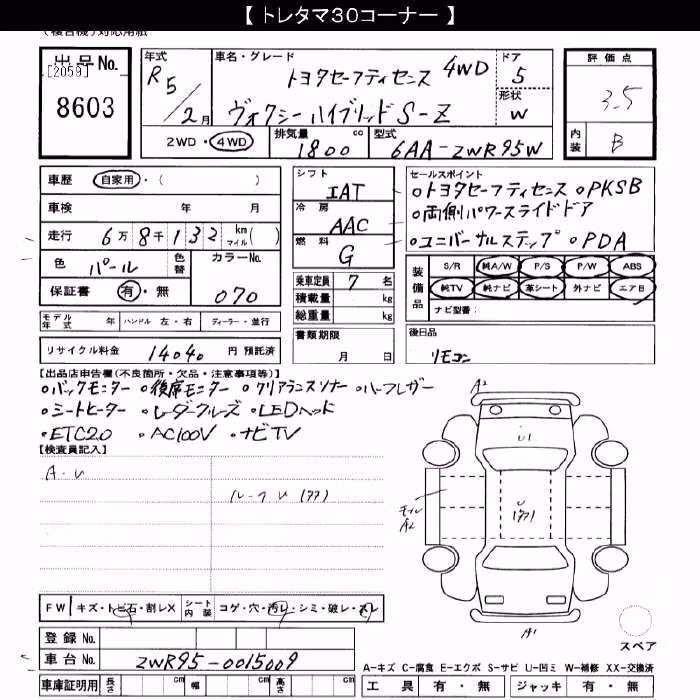 【 トレタマ30コーナー 】
(複合機)対応用紙
出品No. [2059] 8603
年式 R5/2月
車名・グレード トヨタセーフティセンス 4WD
ヴォクシーハイブリッドS-Z
ドア 5
形状 W
評価点 3.5
内装 B
2WD・4WD 排気量 1800 cc 型式 6AA-ZWR95W
車歴 自家用・( )
車検 年 月
走行 6万8千132 km マイル( )
色 パール 色替 カラーNo. 070
保証書 有・無
シフト IAT
冷房 AAC
燃料 G
乗車定員 7 名
積載量 kg
総重量 kg
セールスポイント
○トヨタセーフティセンス ○PKSB
○両側パワースライドドア
○ユニバーサルステップ ○PDA
装備品 S/R 純A/W P/S P/W ABS
純TV 純ナビ 革シート 外ナビ エアB
ナビ型番:
モデル年式 年 ハンドル 左・右 ディーラー・並行
書類期限 月 日
後日品 リモコン
リサイクル料金 14040 円 預託済
【出品店申告欄(不良箇所・欠品・注意事項等)】
○バックモニター ○後席モニター ○クリアランスソナー ○ハーフレザー
○シートヒーター ○レーダークルーズ ○LEDヘッド
・ETC2.0 ・AC100V ・ナビTV
【検査員記入】
A・U
ルーフU(ワワ)
A2
U1
U
モールA2
A1
スペア
FW キズ・トビ石・割レX シート内装 コゲ・穴・汚レ・シミ・破レ・スレ
登録No.
車台No. ZWR95-0015009
車庫証明用 長さ cm 幅 cm 高さ cm
A-キズ C-腐食 E-エクボ S-サビ U-凹ミ W-補修 XX-交換済
工具 有・無 ジャッキ 有・無